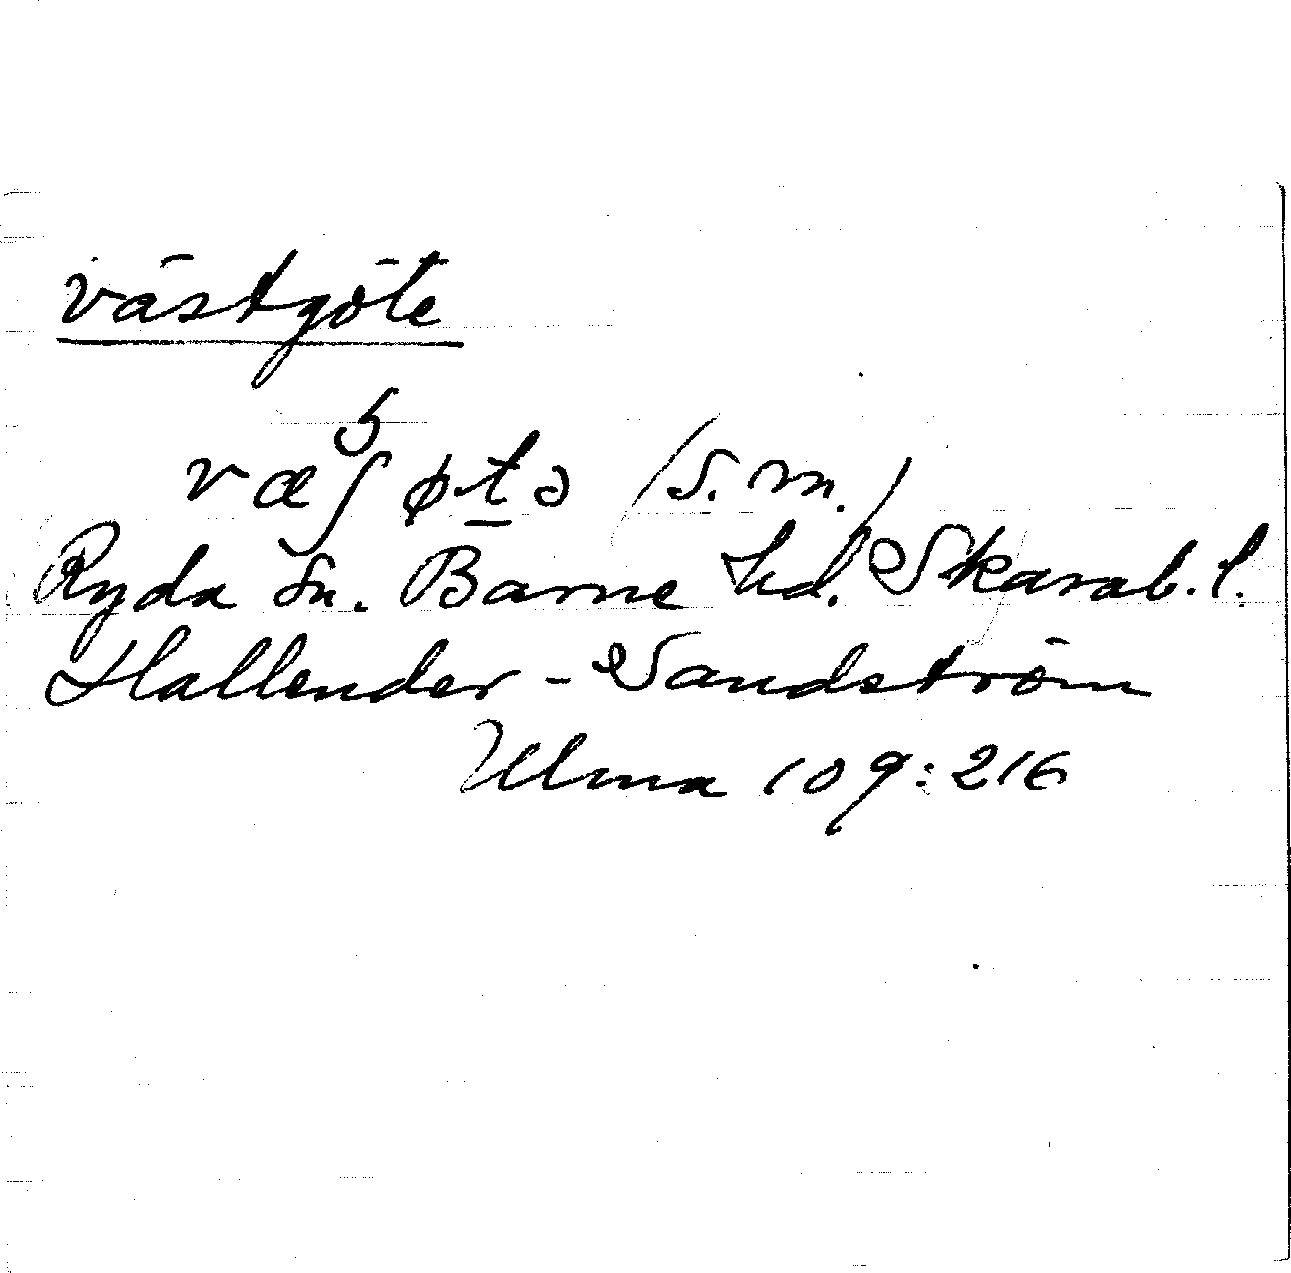 västgöte
væʃøtə (s. m.)
Ryda sn. Barne hd. Skarab. l.
Hallender - Sandström
Ulma 109:216